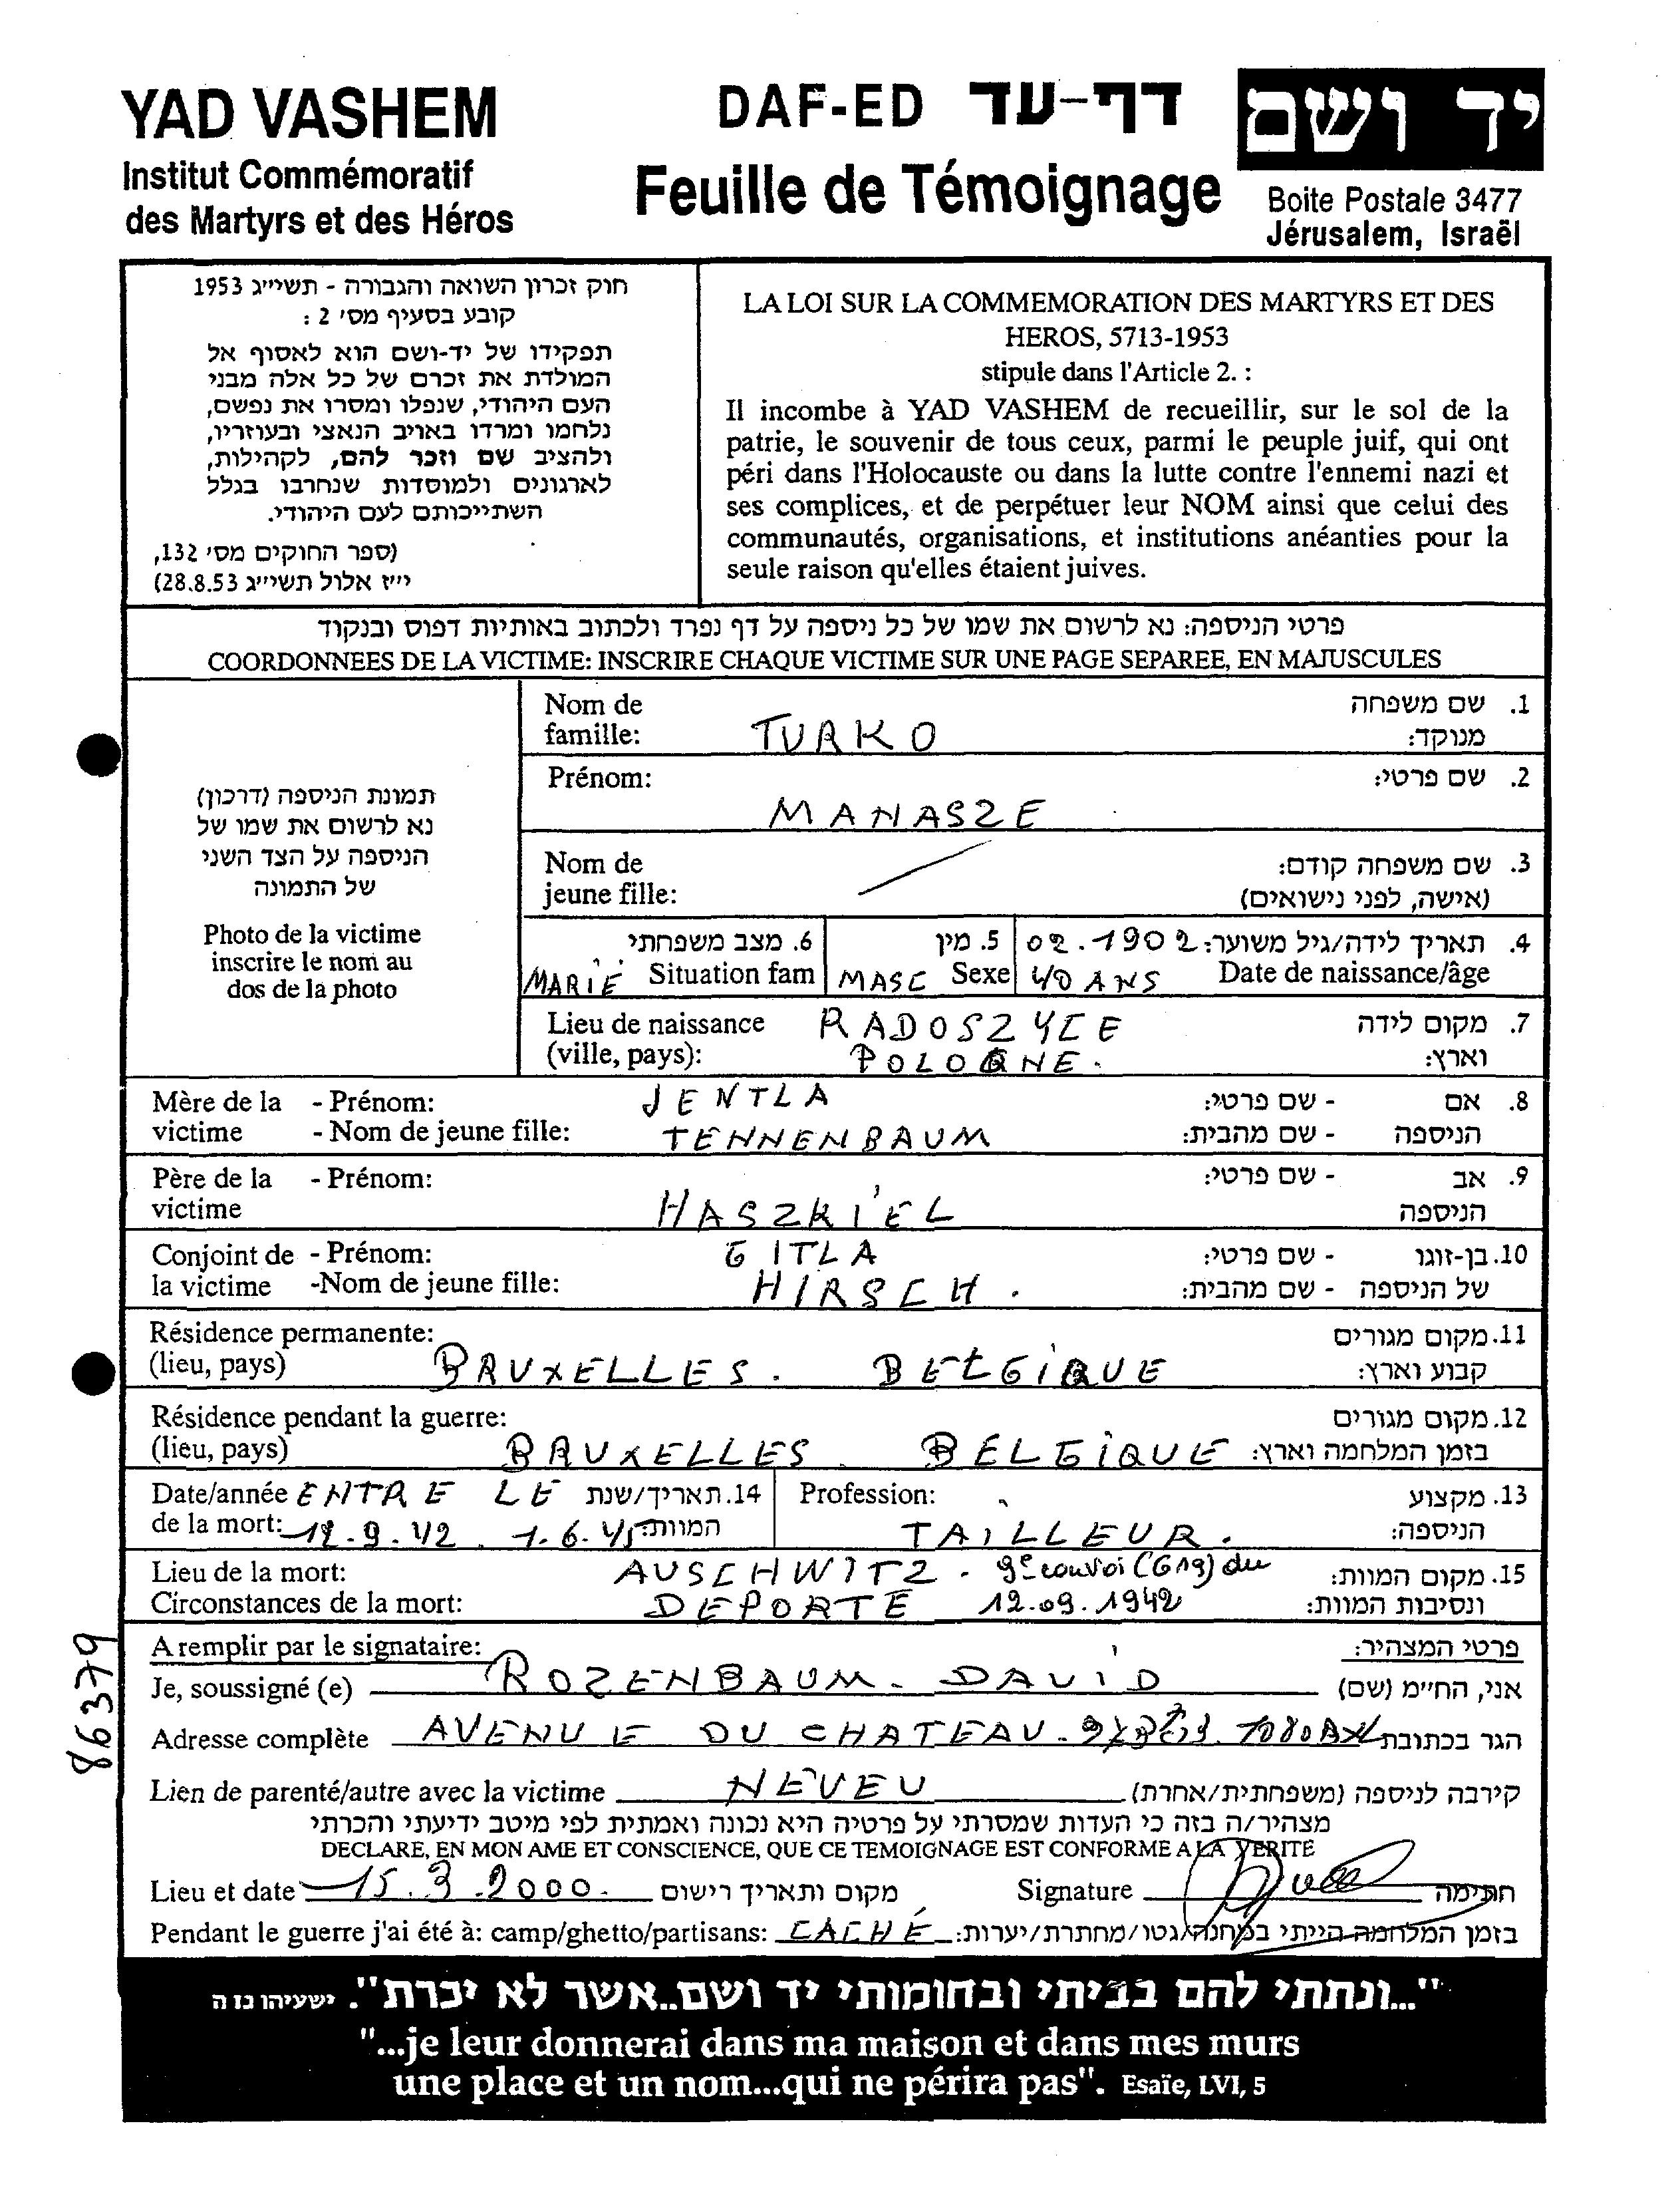 YAD VASHEM
Institut Commémoratif
des Martyrs et des Héros
DAF-ED דף-עד
Feuille de Témoignage
יד ושם
Boite Postale 3477
Jérusalem, Israël
חוק זכרון השואה והגבורה - תשי״ג 1953
קובע בסעיף מס׳ 2 :
תפקידו של יד-ושם הוא לאסוף אל
המולדת את זכרם של כל אלה מבני
העם היהודי, שנפלו ומסרו את נפשם,
נלחמו ומרדו באויב הנאצי ובעוזריו,
ולהציב שם וזכר להם, לקהילות,
לארגונים ולמוסדות שנחרבו בגלל
השתייכותם לעם היהודי.
(ספר החוקים מס׳ 132,
י״ז אלול תשי״ג 28.8.53)
LA LOI SUR LA COMMEMORATION DES MARTYRS ET DES
HEROS, 5713-1953
stipule dans l'Article 2. :
Il incombe à YAD VASHEM de recueillir, sur le sol de la
patrie, le souvenir de tous ceux, parmi le peuple juif, qui ont
péri dans l'Holocauste ou dans la lutte contre l'ennemi nazi et
ses complices, et de perpétuer leur NOM ainsi que celui des
communautés, organisations, et institutions anéanties pour la
seule raison qu'elles étaient juives.
פרטי הניספה: נא לרשום את שמו של כל ניספה על דף נפרד ולכתוב באותיות דפוס ובנקוד
COORDONNEES DE LA VICTIME: INSCRIRE CHAQUE VICTIME SUR UNE PAGE SEPAREE, EN MAJUSCULES
תמונת הניספה (דרכון)
נא לרשום את שמו של
הניספה על הצד השני
של התמונה
Photo de la victime
inscrire le nom au
dos de la photo
Nom de 1. שם משפחה
famille: TURKO מנוקד:
Prénom: 2. שם פרטי:
MANASZE
Nom de 3. שם משפחה קודם:
jeune fille: (אישה, לפני נישואים)
6. מצב משפחתי 5. מין 02.1902 4. תאריך לידה/גיל משוער:
MARIÉ Situation fam MASC Sexe 40 ANS Date de naissance/âge
Lieu de naissance RADOSZYCE 7. מקום לידה
(ville, pays): POLOGNE. וארץ:
Mère de la - Prénom: JENTLA - שם פרטי: 8. אם
victime - Nom de jeune fille: TENNENBAUM - שם מהבית: הניספה
Père de la - Prénom: - שם פרטי: 9. אב
victime HASZKIEL הניספה
Conjoint de - Prénom: GITLA - שם פרטי: 10. בן-זוגו
la victime -Nom de jeune fille: HIRSCH. - שם מהבית: של הניספה
Résidence permanente: 11. מקום מגורים
(lieu, pays) BRUXELLES. BELGIQUE קבוע וארץ:
Résidence pendant la guerre: 12. מקום מגורים
(lieu, pays) BRUXELLES. BELGIQUE בזמן המלחמה וארץ:
Date/année ENTRE LE 14. תאריך/שנת Profession: 13. מקצוע
de la mort: 12.9.42. 1.6.45 המוות: TAILLEUR. הניספה:
Lieu de la mort: AUSCHWITZ. 9e convoi (G19) du 15. מקום המוות:
Circonstances de la mort: DEPORTE 12.09.1942 ונסיבות המוות:
A remplir par le signataire: פרטי המצהיר:
Je, soussigné (e) ROZENBAUM. DAVID אני, הח״מ (שם)
Adresse complète AVENUE DU CHATEAU. הגר בכתובת
Lien de parenté/autre avec la victime NEVEU קירבה לניספה (משפחתית/אחרת)
מצהיר/ה בזה כי העדות שמסרתי על פרטיה היא נכונה ואמתית לפי מיטב ידיעתי והכרתי
DECLARE, EN MON AME ET CONSCIENCE, QUE CE TEMOIGNAGE EST CONFORME A LA VERITE
Lieu et date 15.3.2000. מקום ותאריך רישום Signature חתימה
Pendant le guerre j'ai été à: camp/ghetto/partisans: CACHÉ בזמן המלחמה הייתי במחנה/גטו/מחתרת/יערות:
86379
"...ונתתי להם בביתי ובחומותי יד ושם..אשר לא יכרת". ישעיהו נו ה
"...je leur donnerai dans ma maison et dans mes murs
une place et un nom...qui ne périra pas". Esaïe, LVI, 5